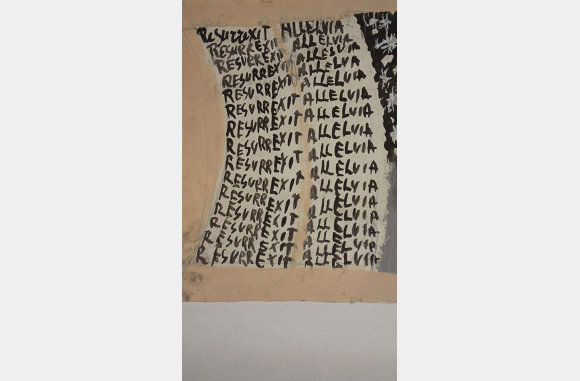 RESURREXIT ALLELVIA
RESURREXIT ALLELVIA
RESURREXIT ALLELVIA
RESURREXIT ALLELVIA
RESURREXIT ALLELVIA
RESURREXIT ALLELVIA
RESURREXIT ALLELVIA
RESURREXIT ALLELVIA
RESURREXIT ALLELVIA
RESURREXIT ALLELVIA
RESURREXIT ALLELVIA
RESURREXIT ALLELVIA
RESURREXIT ALLELVIA
RESURREXIT ALLELVIA
RESURREXIT ALLELVIA